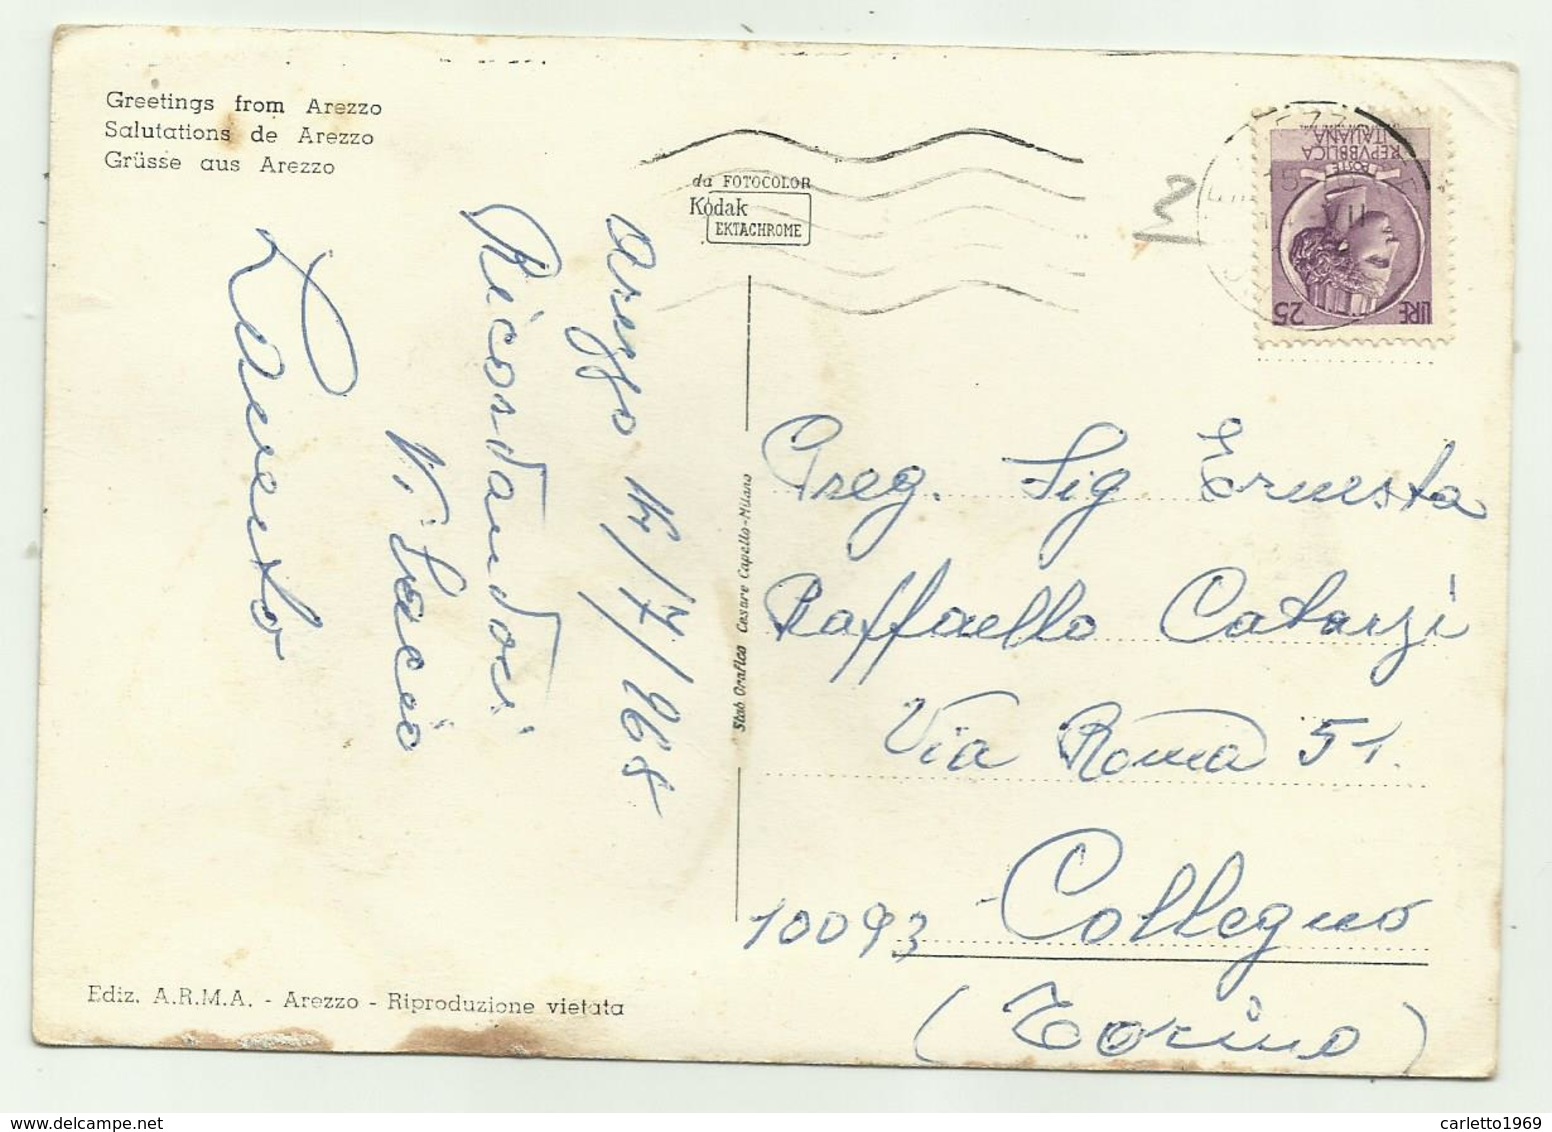 Greetings from Arezzo
Salutations de Arezzo
Grüsse aus Arezzo
da FOTOCOLOR
Kodak
EKTACHROME
POSTE
REPVBBLICA
ITALIANA
LIRE 25
2
Arezzo 14/7/968
Ricordandoci
Vi bacio
Stab Grafico Cesare Capello-Milano
Preg. Sig Ernesta
Raffaello Catarzi
Via Roma 51.
10093 Collegno
(Torino)
Ediz. A.R.M.A. - Arezzo - Riproduzione vietata
carletto1969